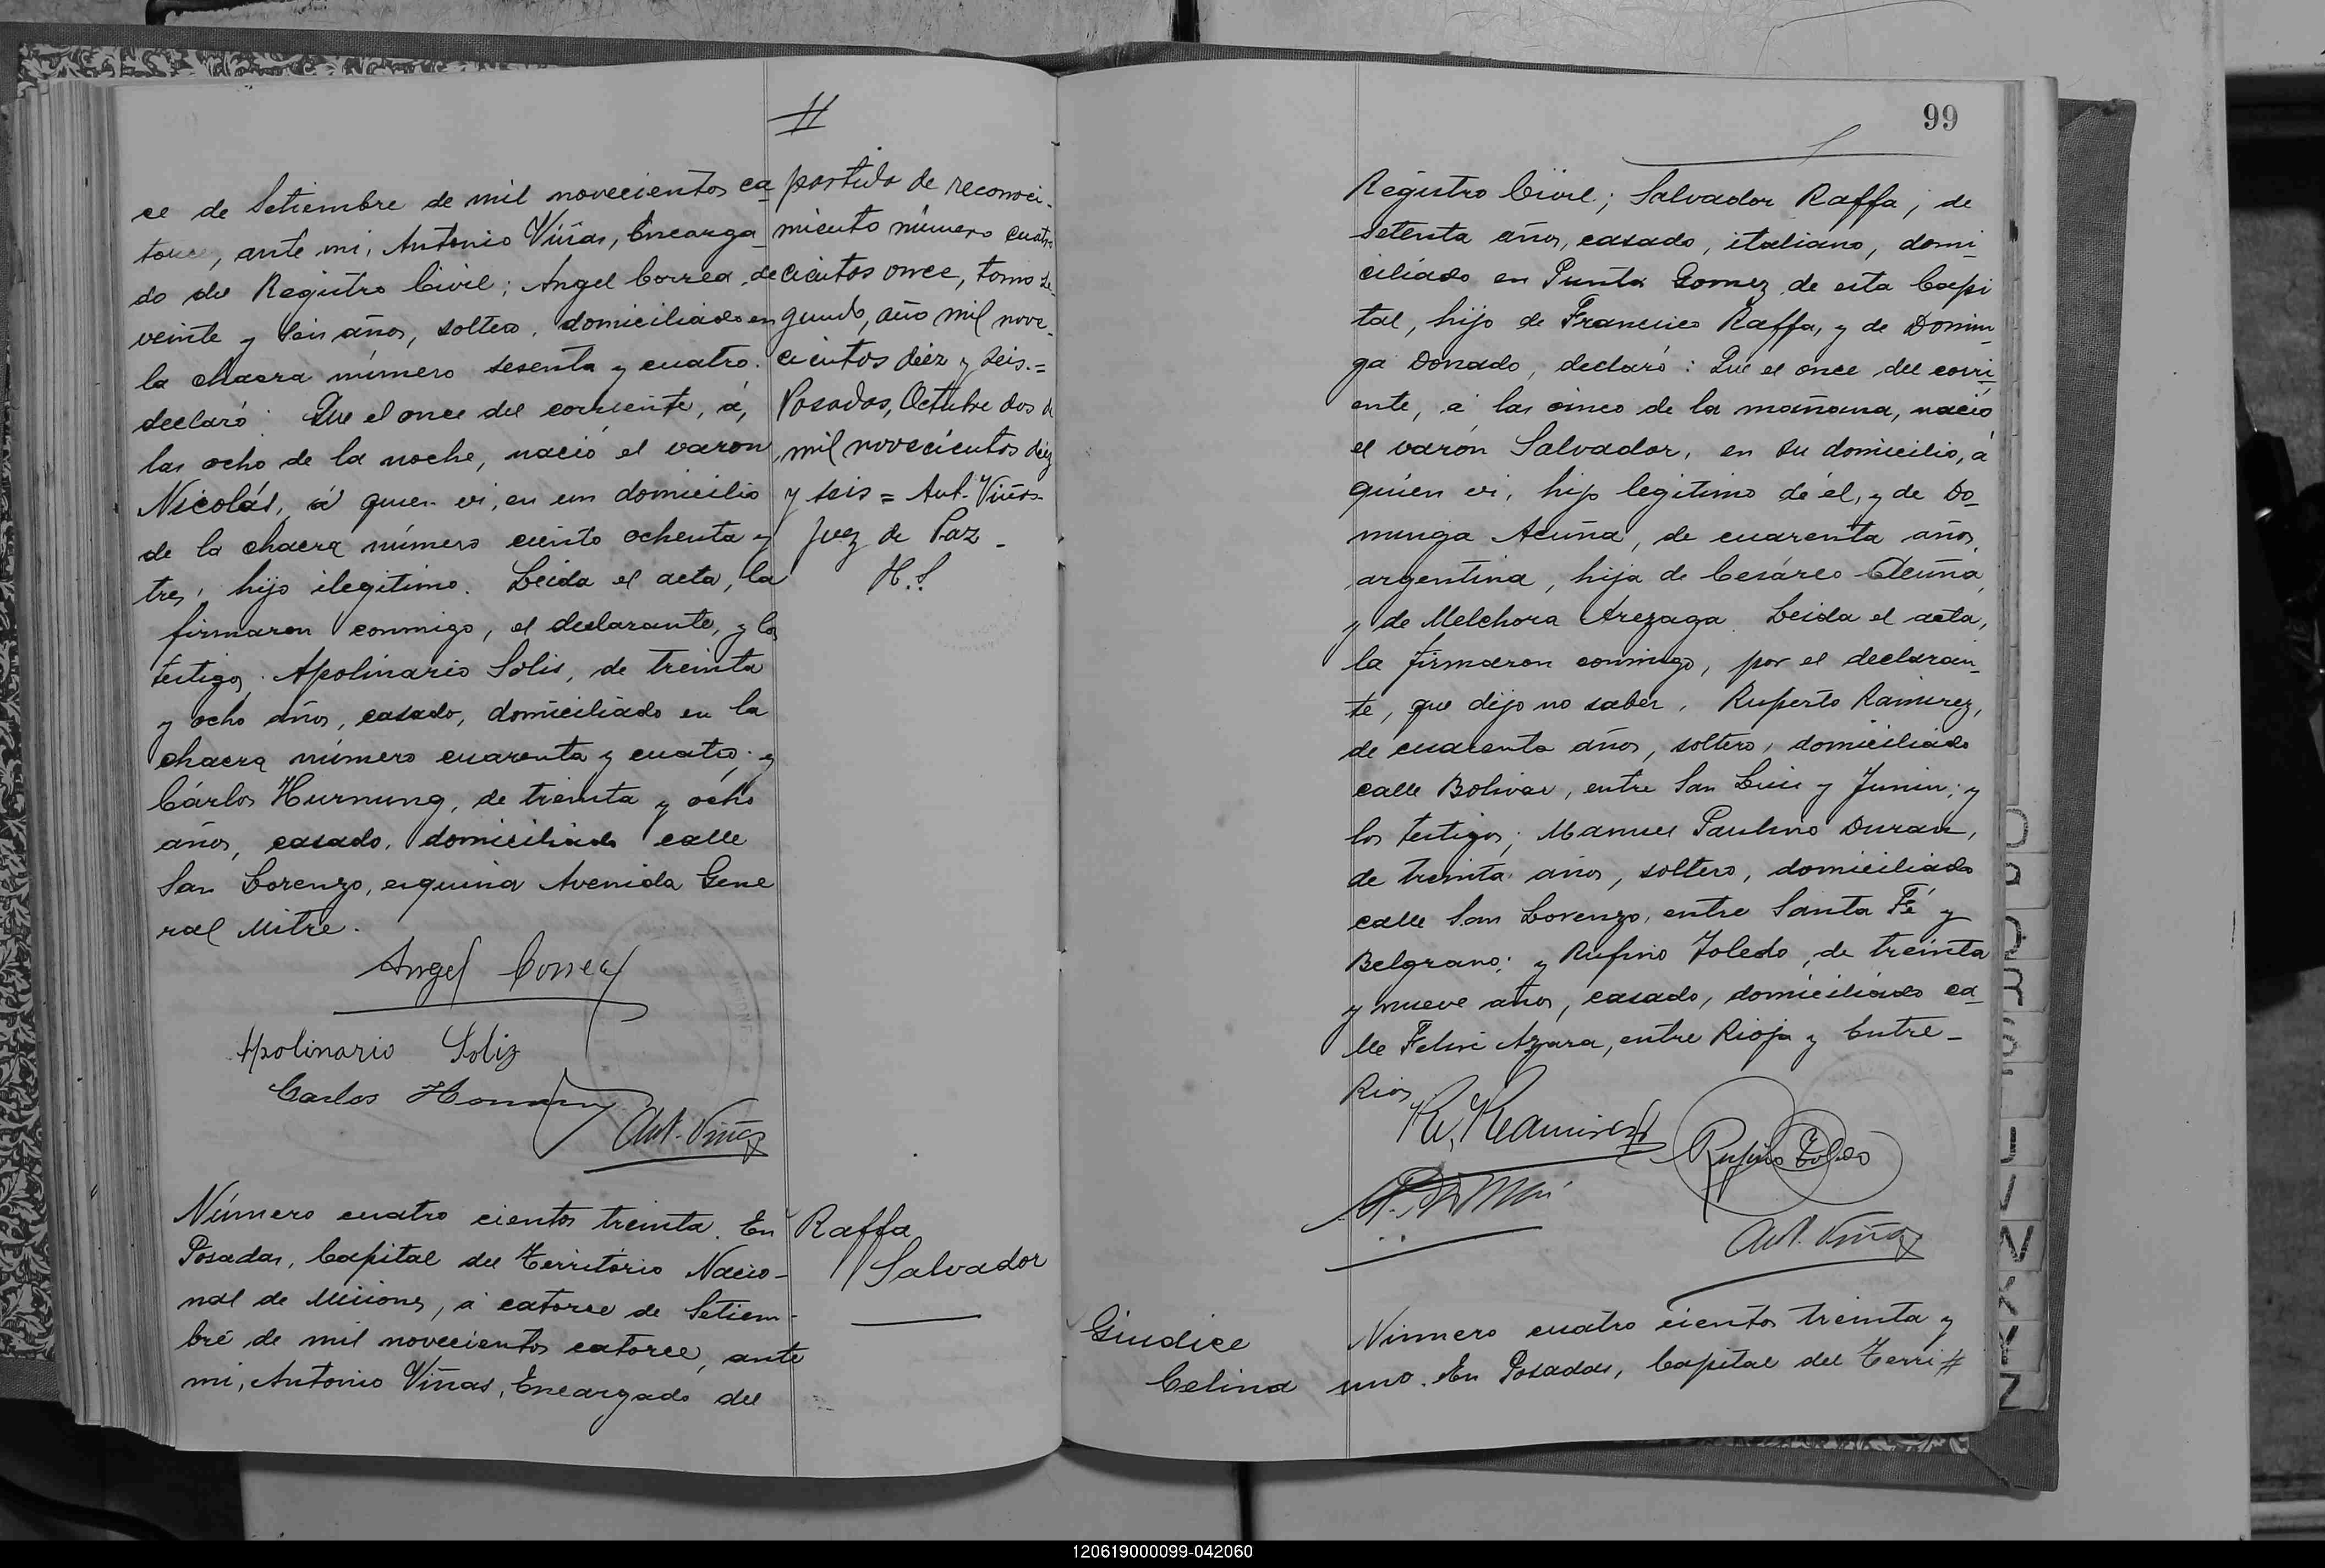 ce de Setiembre de mil novecientos ca
torce, ante mi, Antonio Viñas, Encarga
do del Registro Civil; Angel Correa, de
veinte y seis años, soltero, domiciliado en
la chacra número sesenta y cuatro.
declaró: Que el once del corriente, á,
las ocho de la noche, nació el varon
Nicolás, á quien vi, en un domicilio
de la chacra número ciento ochenta y
tres, hijo ilegitimo. Leida el acta, la
firmaron conmigo, el declarante, y los
testigos, Apolinario Solis, de treinta
y ocho años, casado, domiciliado en la
chacra número cuarenta y cuatro; y
Cárlos Hurnung, de treinta y ocho
años, casado, domiciliado calle
San Lorenzo, esquina Avenida Gene
ral Mitre.
Angel Correa
Apolinario Soliz
Carlos
Ant. Viñas
#
partida de reconoci-
miento número cuatro
cientos once, tomo se-
gundo, año mil nove-
cientos diez y seis.=
Posadas, Octubre dos de
mil novecientos diez
y seis = Ant. Viñas
Juez de Paz -
H.S
Número cuatro cientos treinta. En
Posadas, Capital del Territorio Nacio-
nal de Misiones, á catorce de Setiem-
bre de mil novecientos catorce, ante
mi, Antonio Viñas, Encargado del
Raffa
Salvador
99
Registro Civil; Salvador Raffa, de
setenta años, casado, italiano, domi-
ciliado en Punta Gomez, de esta Capi
tal, hijo de Francisco Raffa, y de Domin-
ga Donado, declaró: Que el once del corri-
ente, á las cinco de la mañana, nació
el varón Salvador, en su domicilio, á
quien vi, hijo legitimo de él, y de Do-
minga Acuña, de cuarenta años,
argentina, hija de Cesáreo Acuña,
y de Melchora Arezaga. Leida el acta,
la firmaron conmigo, por el declaran-
te, que dijo no saber, Ruperto Ramirez,
de cuarenta años, soltero, domiciliado
calle Bolivar, entre San Luis y Junin; y
los testigos; Manuel Paulino Duran,
de treinta años, soltero, domiciliado
calle San Lorenzo, entre Santa Fé y
Belgrano; y Rufino Toledo, de treinta
y nueve años, casado, domiciliado ca-
lle Felix Azara, entre Rioja y Entre-
Rios
R. Ramirez
Rufino Toledo
Ant. Viñas
Giudice
Celina
Número cuatro cientos treinta y
uno. En Posadas, Capital del Terri #
120619000099-042060